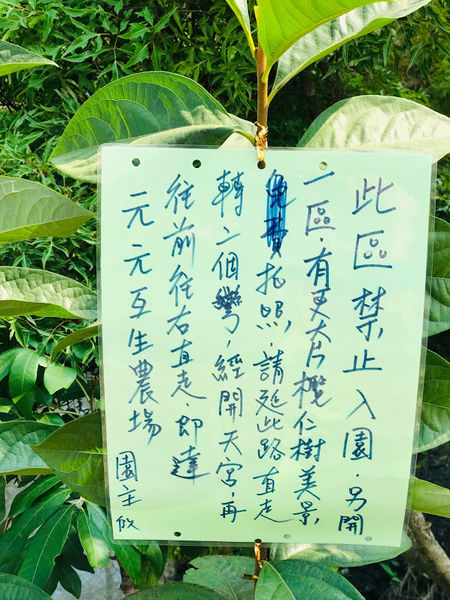 此區禁止入園，另開
一區，有更大片欖仁樹美景，
免費拍照，請延此路直走
轉二個彎，經開天宮，再
往前往右直走即達
元元互生農場
園主啟